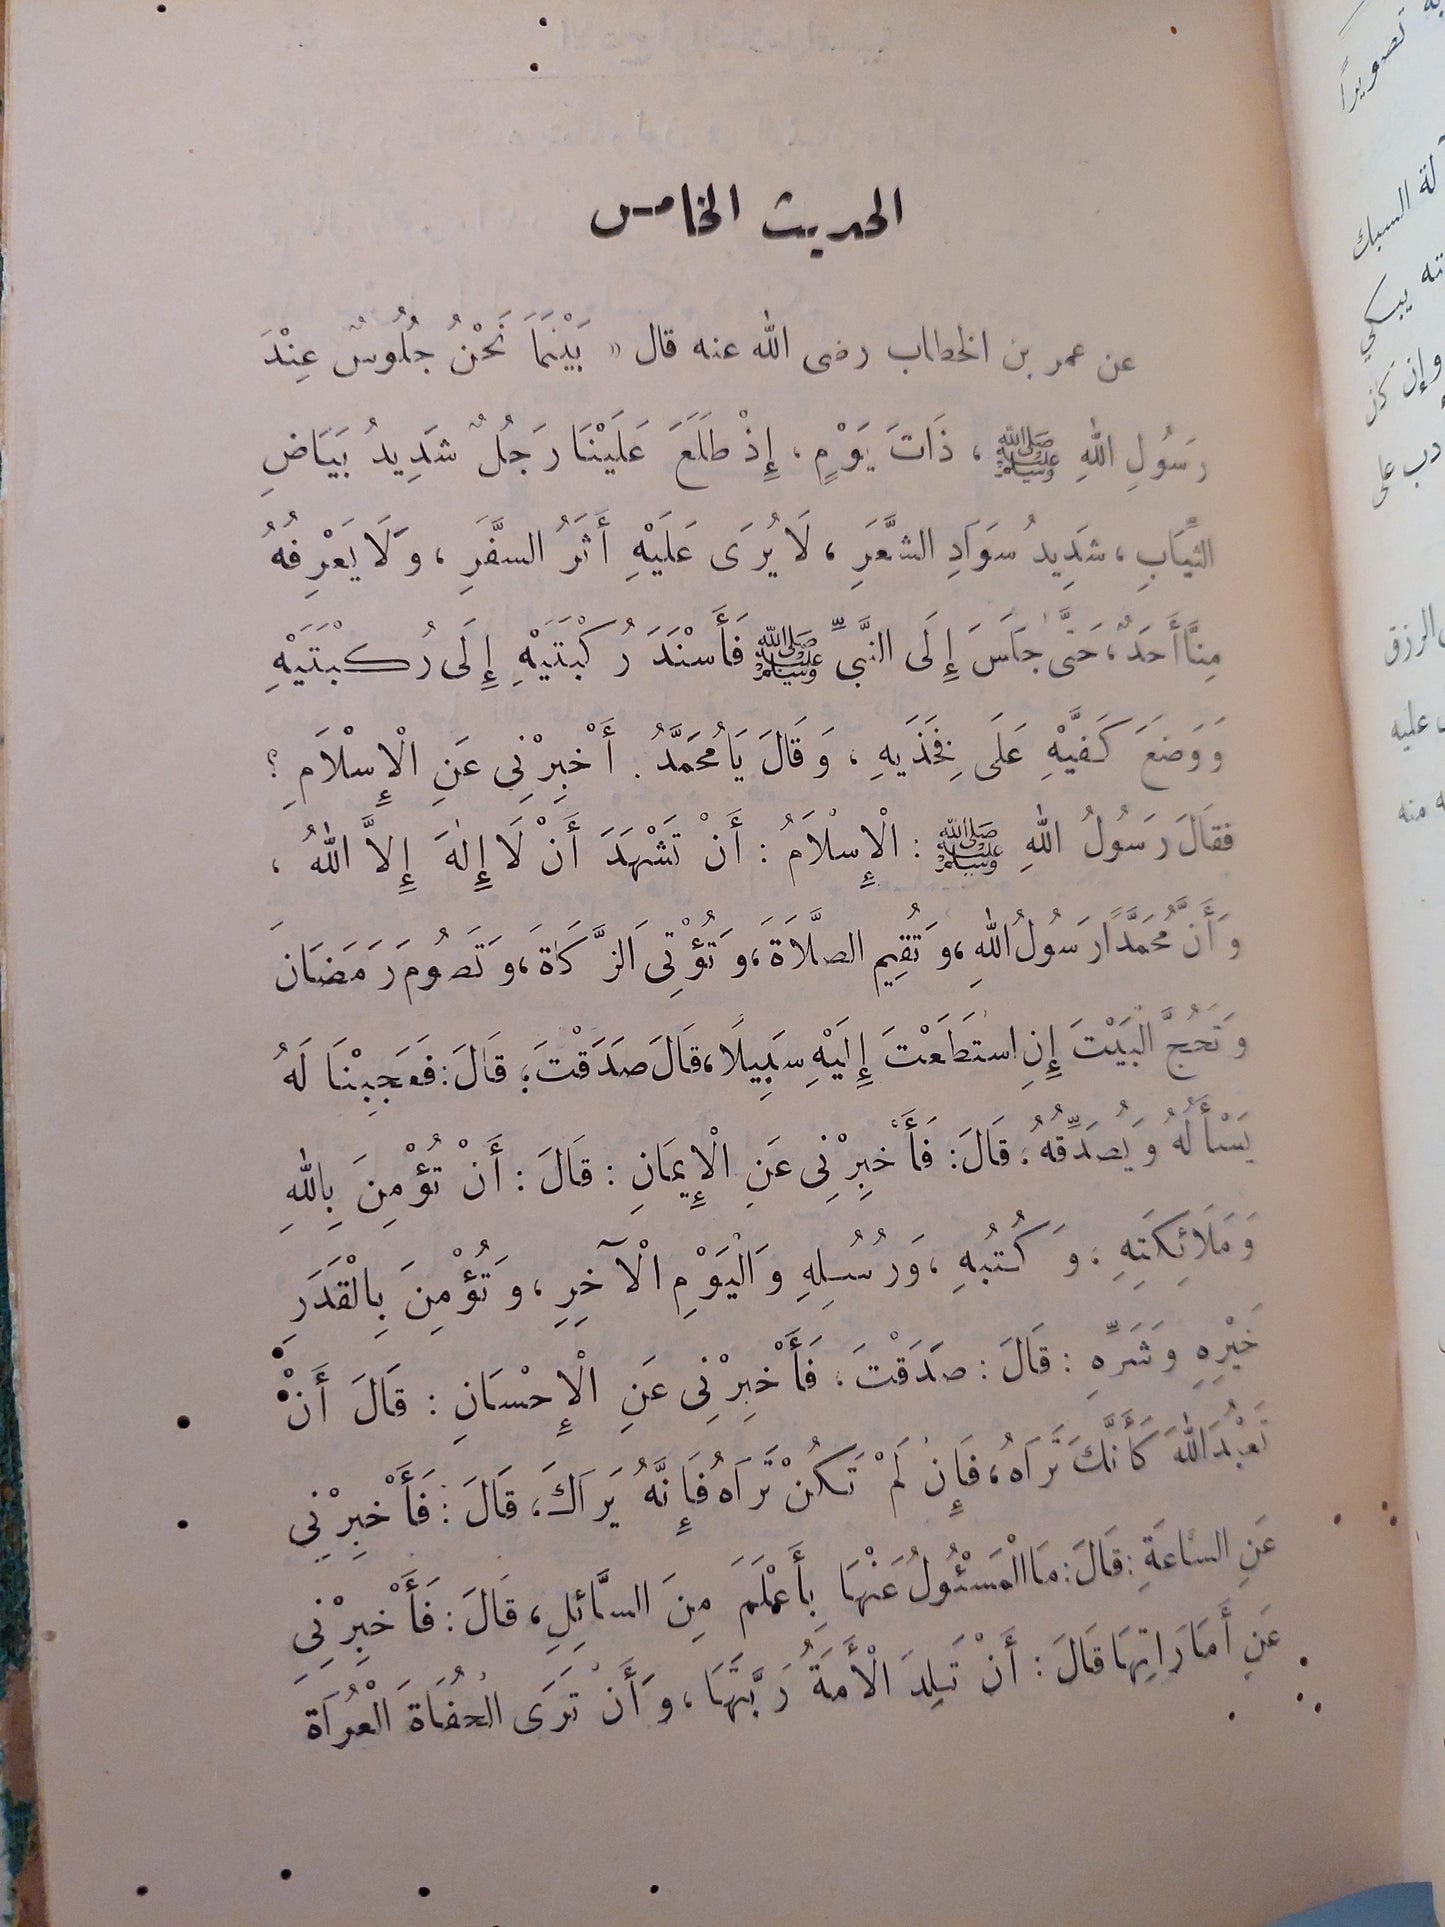 الحديث الخامس
عن عمر بن الخطاب رضى الله عنه قال « بَيْنَمَا نَحْنُ جُلُوسٌ عِنْدَ
رَسُولِ اللهِ ﷺ ، ذَاتَ يَوْمٍ ، إِذْ طَلَعَ عَلَيْنَا رَجُلٌ شَدِيدُ بَيَاضِ
الثِّيَابِ ، شَدِيدُ سَوَادِ الشَّعَرِ ، لَا يُرَى عَلَيْهِ أَثَرُ السَّفَرِ ، وَلَا يَعْرِفُهُ
مِنَّا أَحَدٌ ، حَتَّى جَلَسَ إِلَى النَّبِيِّ ﷺ فَأَسْنَدَ رُكْبَتَيْهِ إِلَى رُكْبَتَيْهِ
وَوَضَعَ كَفَّيْهِ عَلَى فَخِذَيهِ ، وَقَالَ يَا مُحَمَّدُ . أَخْبِرْنِى عَنِ الْإِسْلَامِ ؟
فقَالَ رَسُولُ اللهِ ﷺ : الْإِسْلَامُ : أَنْ تَشْهَدَ أَنْ لَا إِلٰهَ إِلاَّ اللهُ ،
وَأَنَّ مُحَمَّدًا رَسُولُ اللهِ ، وَتُقِيم الصَّلَاةَ ، وَتُؤْتِىَ الزَّكَاةَ ، وَتَصُومَ رَمَضَانَ
وَتَحُجَّ الْبَيْتَ إِنِ اسْتَطَعْتَ إِلَيْهِ سَبِيلًا ، قَالَ صَدَقْتَ ؛ قَالَ : فَعَجِبْنَا لَهُ
يَسْأَلُهُ وَيُصَدِّقُهُ . قَالَ : فَأَخْبِرْنِى عَنِ الْإِيمَانِ : قَالَ : أَنْ تُؤْمِنَ بِاللهِ
وَمَلَائِكَتِهِ . وَكُتُبِهِ ، وَرُسُلِهِ وَالْيَوْمِ الْآخِرِ ، وَتُؤْمِنَ بِالْقَدَرِ
خَيْرِهِ وَشَرِّهِ : قَالَ : صَدَقْتَ . فَأَخْبِرْنِى عَنِ الْإِحْسَانِ : قَالَ أَنْ
تَعْبُدَ اللهَ كَأَنَّكَ تَرَاهُ ، فَإِنْ لَمْ تَكُنْ تَرَاهُ فَإِنَّهُ يَرَاكَ ، قَالَ : فَأَخْبِرْنِي
عَنِ السَّاعَةِ : قَالَ : مَا الْمَسْئُولُ عَنْهَا بِأَعْلَمَ مِنَ السَّائِلِ ، قَالَ : فَأَخْبِرْنِي
عَنِ أَمَارَاتِهَا قَالَ : أَنْ تَلِدَ الْأَمَةُ رَبَّتَهَا ، وَأَنْ تَرَى الْحُفَاةَ الْعُرَاةَ
تصويراً
لة السبك
يبكي
وإن كان
دب على
الرزق
عليه
منه